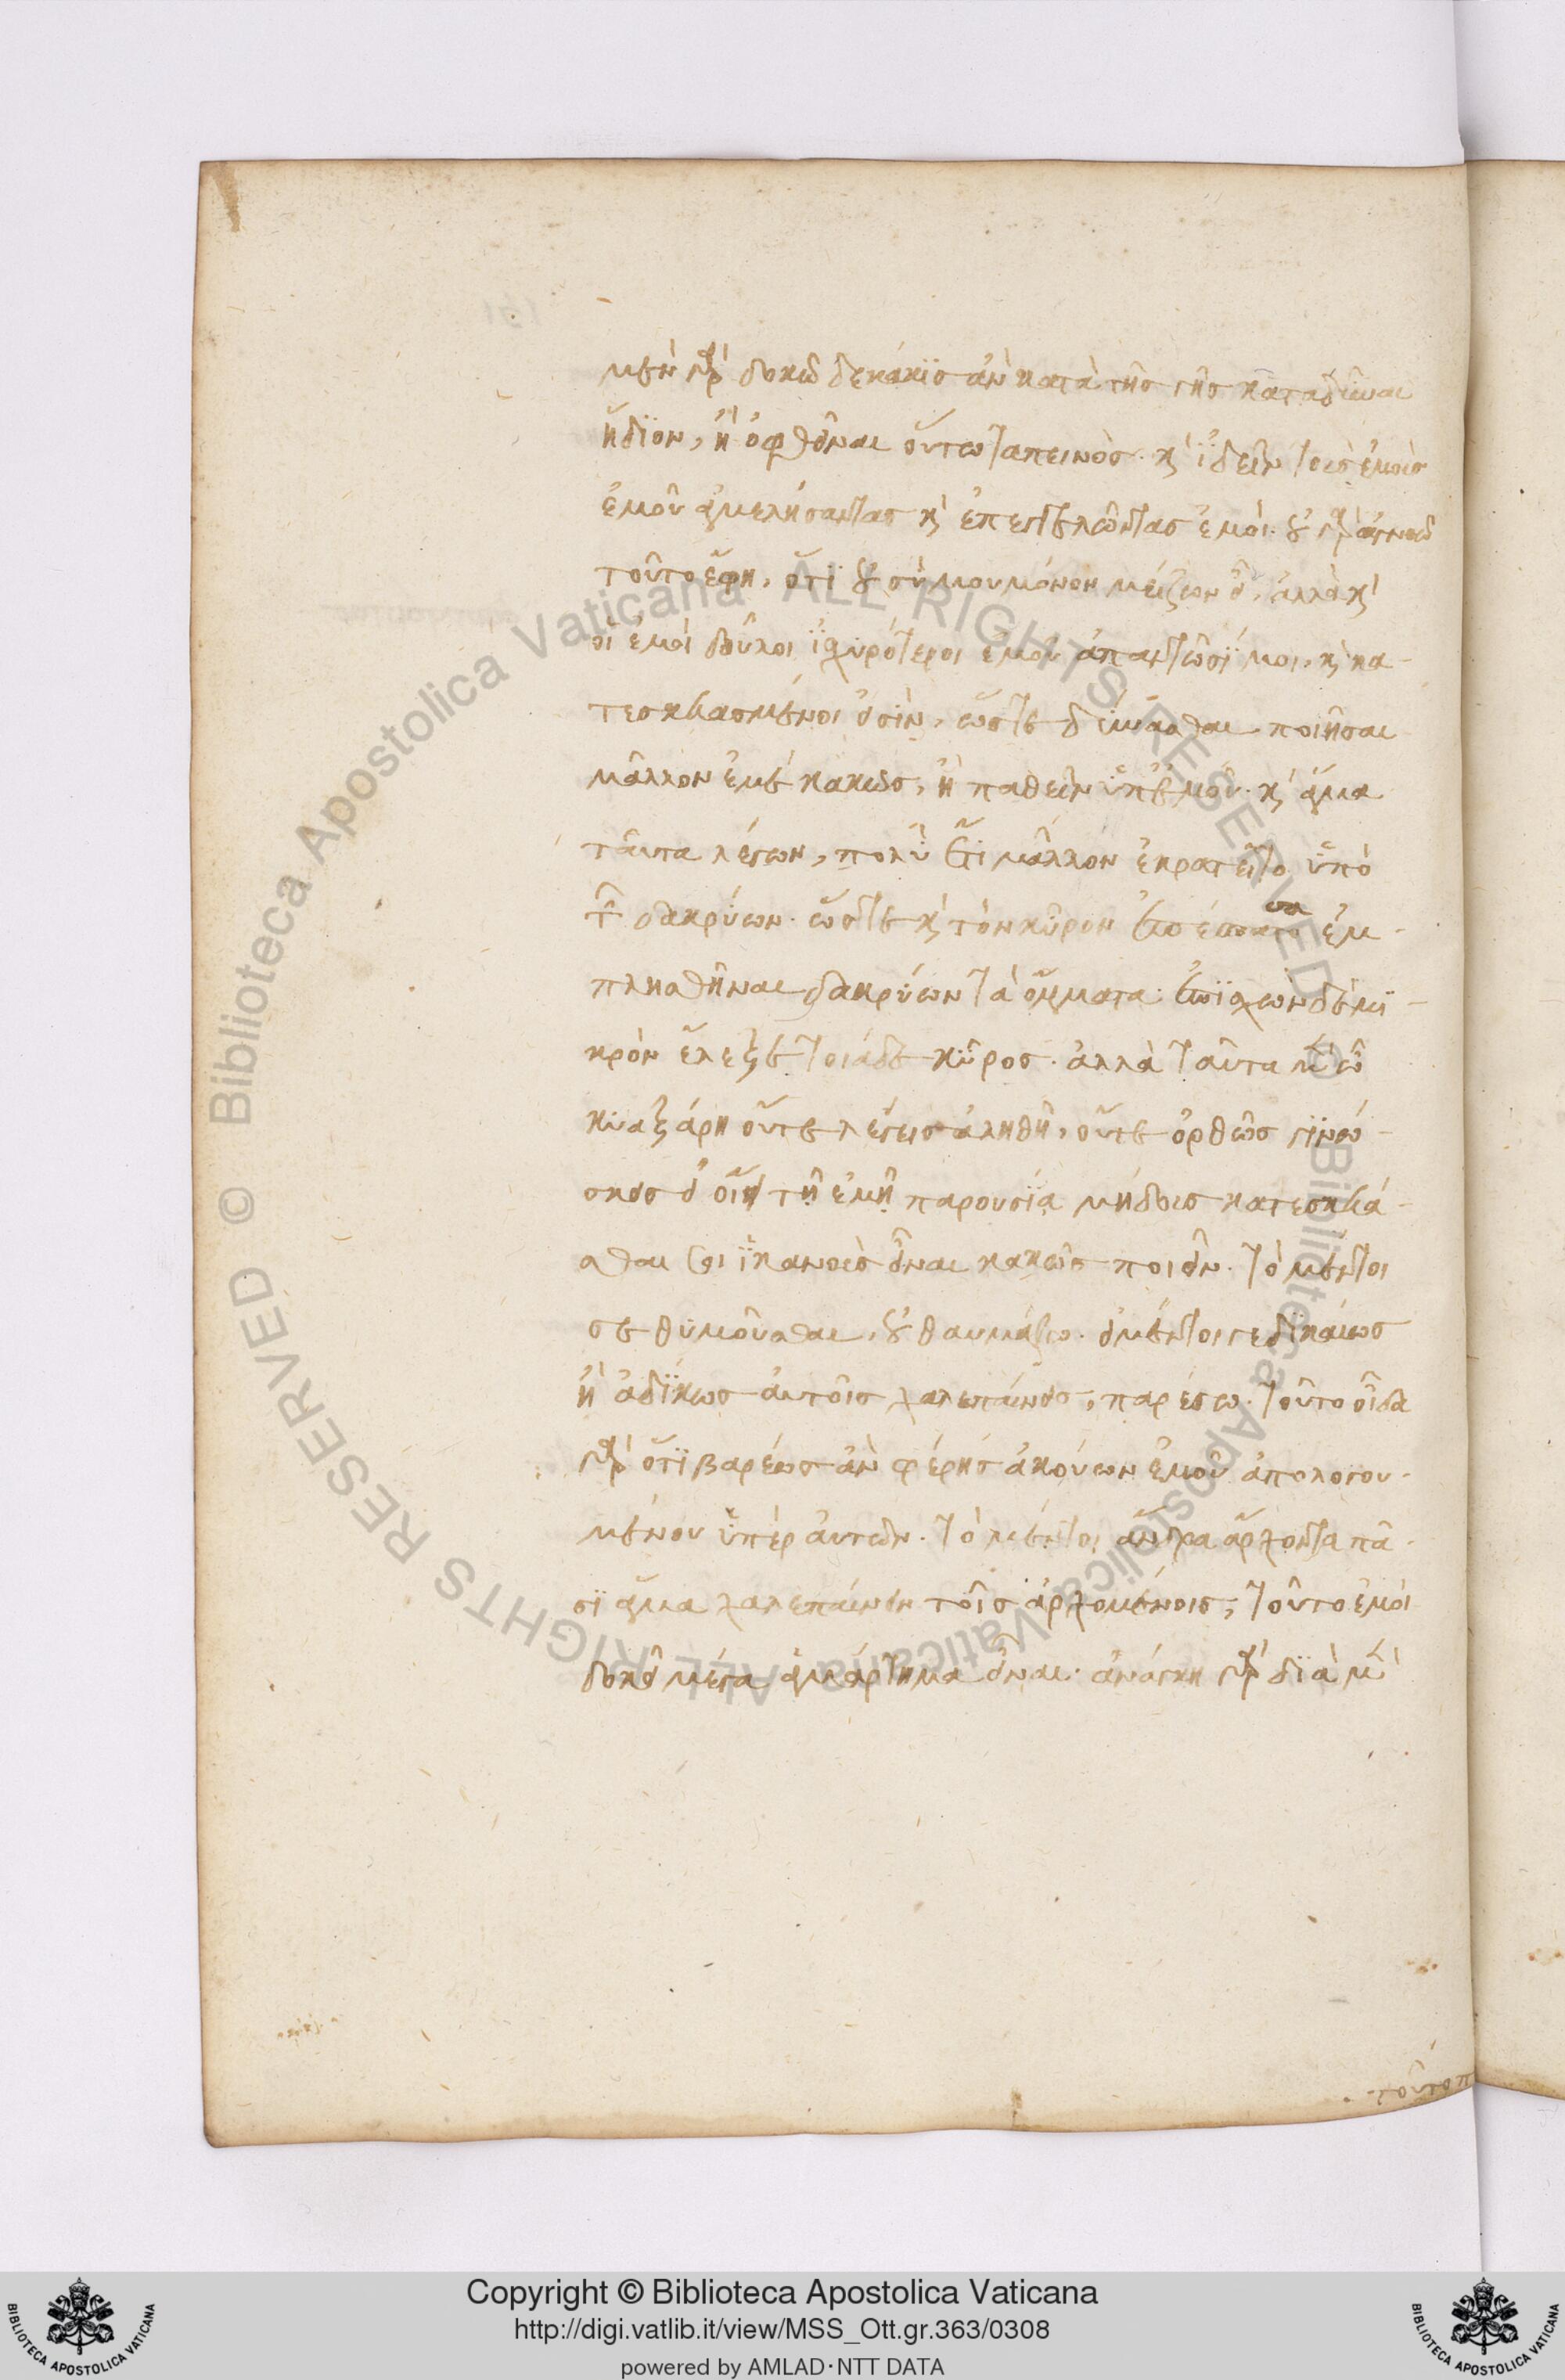 μὲν γὰρ δοκῶ δεκάκις ἂν κατὰ τῆς γῆς καταδῦναι
ἥδιον, ἢ ὀφθῆναι οὕτω ταπεινός. κ̀ ἰδεῖν τοὺς ἐμοὺς
ἐμοῦ ἀμελήσαντας κ̀ ἐπεγγελῶντας ἐμοί. οὐ γὰρ ἀγνοῶ
τοῦτο ἔφη, ὅτι οὐ σύ μου μόνον μείζων εἶ, ἀλλὰ κ̀
οἱ ἐμοὶ δοῦλοι ἰσχυρότεροι ἐμοῦ ἀπαντῶσί μοι, κ̀ κα-
τεσκευασμένοι εἰσίν, ὥστε δύνασθαι ποιῆσαι
μᾶλλον ἐμὲ κακῶς, ἢ παθεῖν ὑπ' ἐμοῦ. κ̀ ἅμα
ταῦτα λέγων, πολὺ ἔτι μᾶλλον ἐκρατεῖτο ὑπὸ
τῶν δακρύων. ὥστε κ̀ τὸν κῦρον ἐμ-
πλησθῆναι δακρύων τὰ ὄμματα. ἐπισχὼν δὲ μι-
κρὸν ἔλεξε τοιάδε κῦρος. ἀλλὰ ταῦτα μὲν ὦ
κυαξάρη οὔτε λέγεις ἀληθῆ, οὔτε ὀρθῶς γινώ-
σκεις εἰ οἴει τῇ ἐμῇ παρουσίᾳ μήδους κατεσκευά-
σθαι ἱκανοὺς εἶναι κακῶς ποιεῖν. τὸ μέντοι
σε θυμοῦσθαι, οὐ θαυμάζω. εἰ μέντοι γε δικαίως
ἢ ἀδίκως αὐτοῖς χαλεπαίνεις, παρήσω. τοῦτο οἶδα
γὰρ ὅτι βαρέως ἂν φέροις ἀκούων ἐμοῦ ἀπολογου-
μένου ὑπὲρ αὐτῶν. τὸ μέντοι ἄνδρα ἄρχοντα πᾶ-
σι ἅμα χαλεπαίνειν τοῖς ἀρχομένοις, τοῦτο ἐμοὶ
δοκεῖ μέγα ἁμάρτημα εἶναι. ἀνάγκη γὰρ διὰ μὲν
τοῦ το π
Copyright © Biblioteca Apostolica Vaticana
http://digi.vatlib.it/view/MSS_Ott.gr.363/0308
powered by AMLAD·NTT DATA